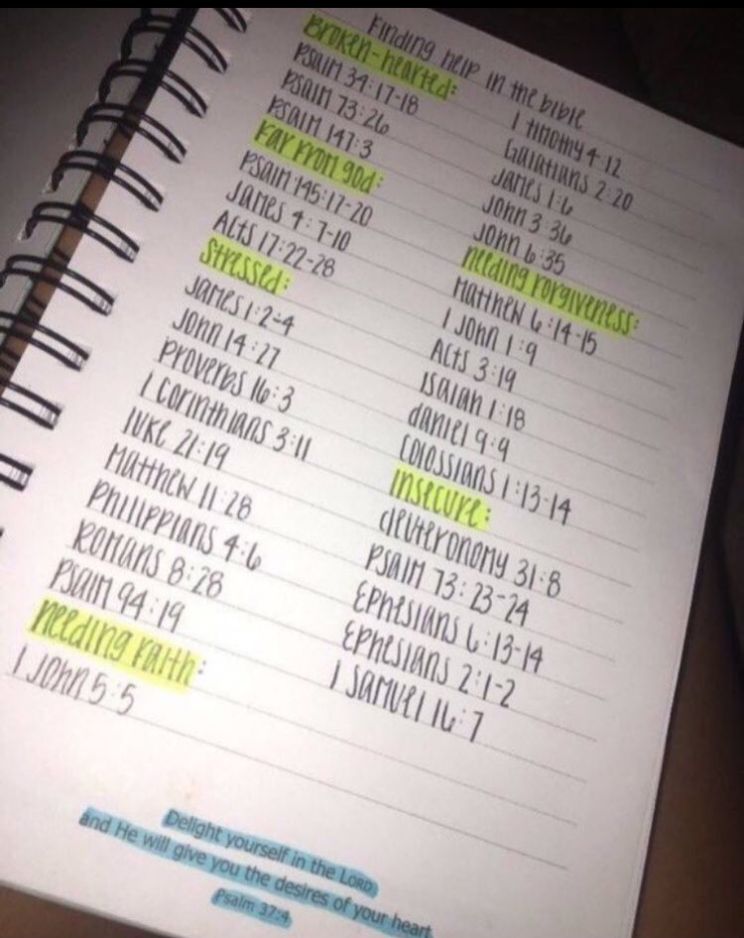 Finding help in the bible
Broken-hearted:
Psalm 34:17-18
Psalm 73:26
Psalm 147:3
Far from god:
Psalm 145:17-20
James 4:7-10
Acts 17:22-28
Stressed:
James 1:2-4
John 14:27
Proverbs 16:3
1 Corinthians 3:11
Luke 21:19
Matthew 11:28
Philippians 4:6
Romans 8:28
Psalm 94:19
Needing Faith:
1 John 5:5
1 Timothy 4:12
Galatians 2:20
James 1:6
John 3:36
John 6:35
Needing Forgiveness:
Matthew 6:14-15
1 John 1:9
Acts 3:19
Isaiah 1:18
daniel 9:9
Colossians 1:13-14
Insecure:
deuteronomy 31:8
Psalm 73:23-24
Ephesians 6:13-14
Ephesians 2:1-2
1 Samuel 16:7
Delight yourself in the LORD
and He will give you the desires of your heart
Psalm 37:4